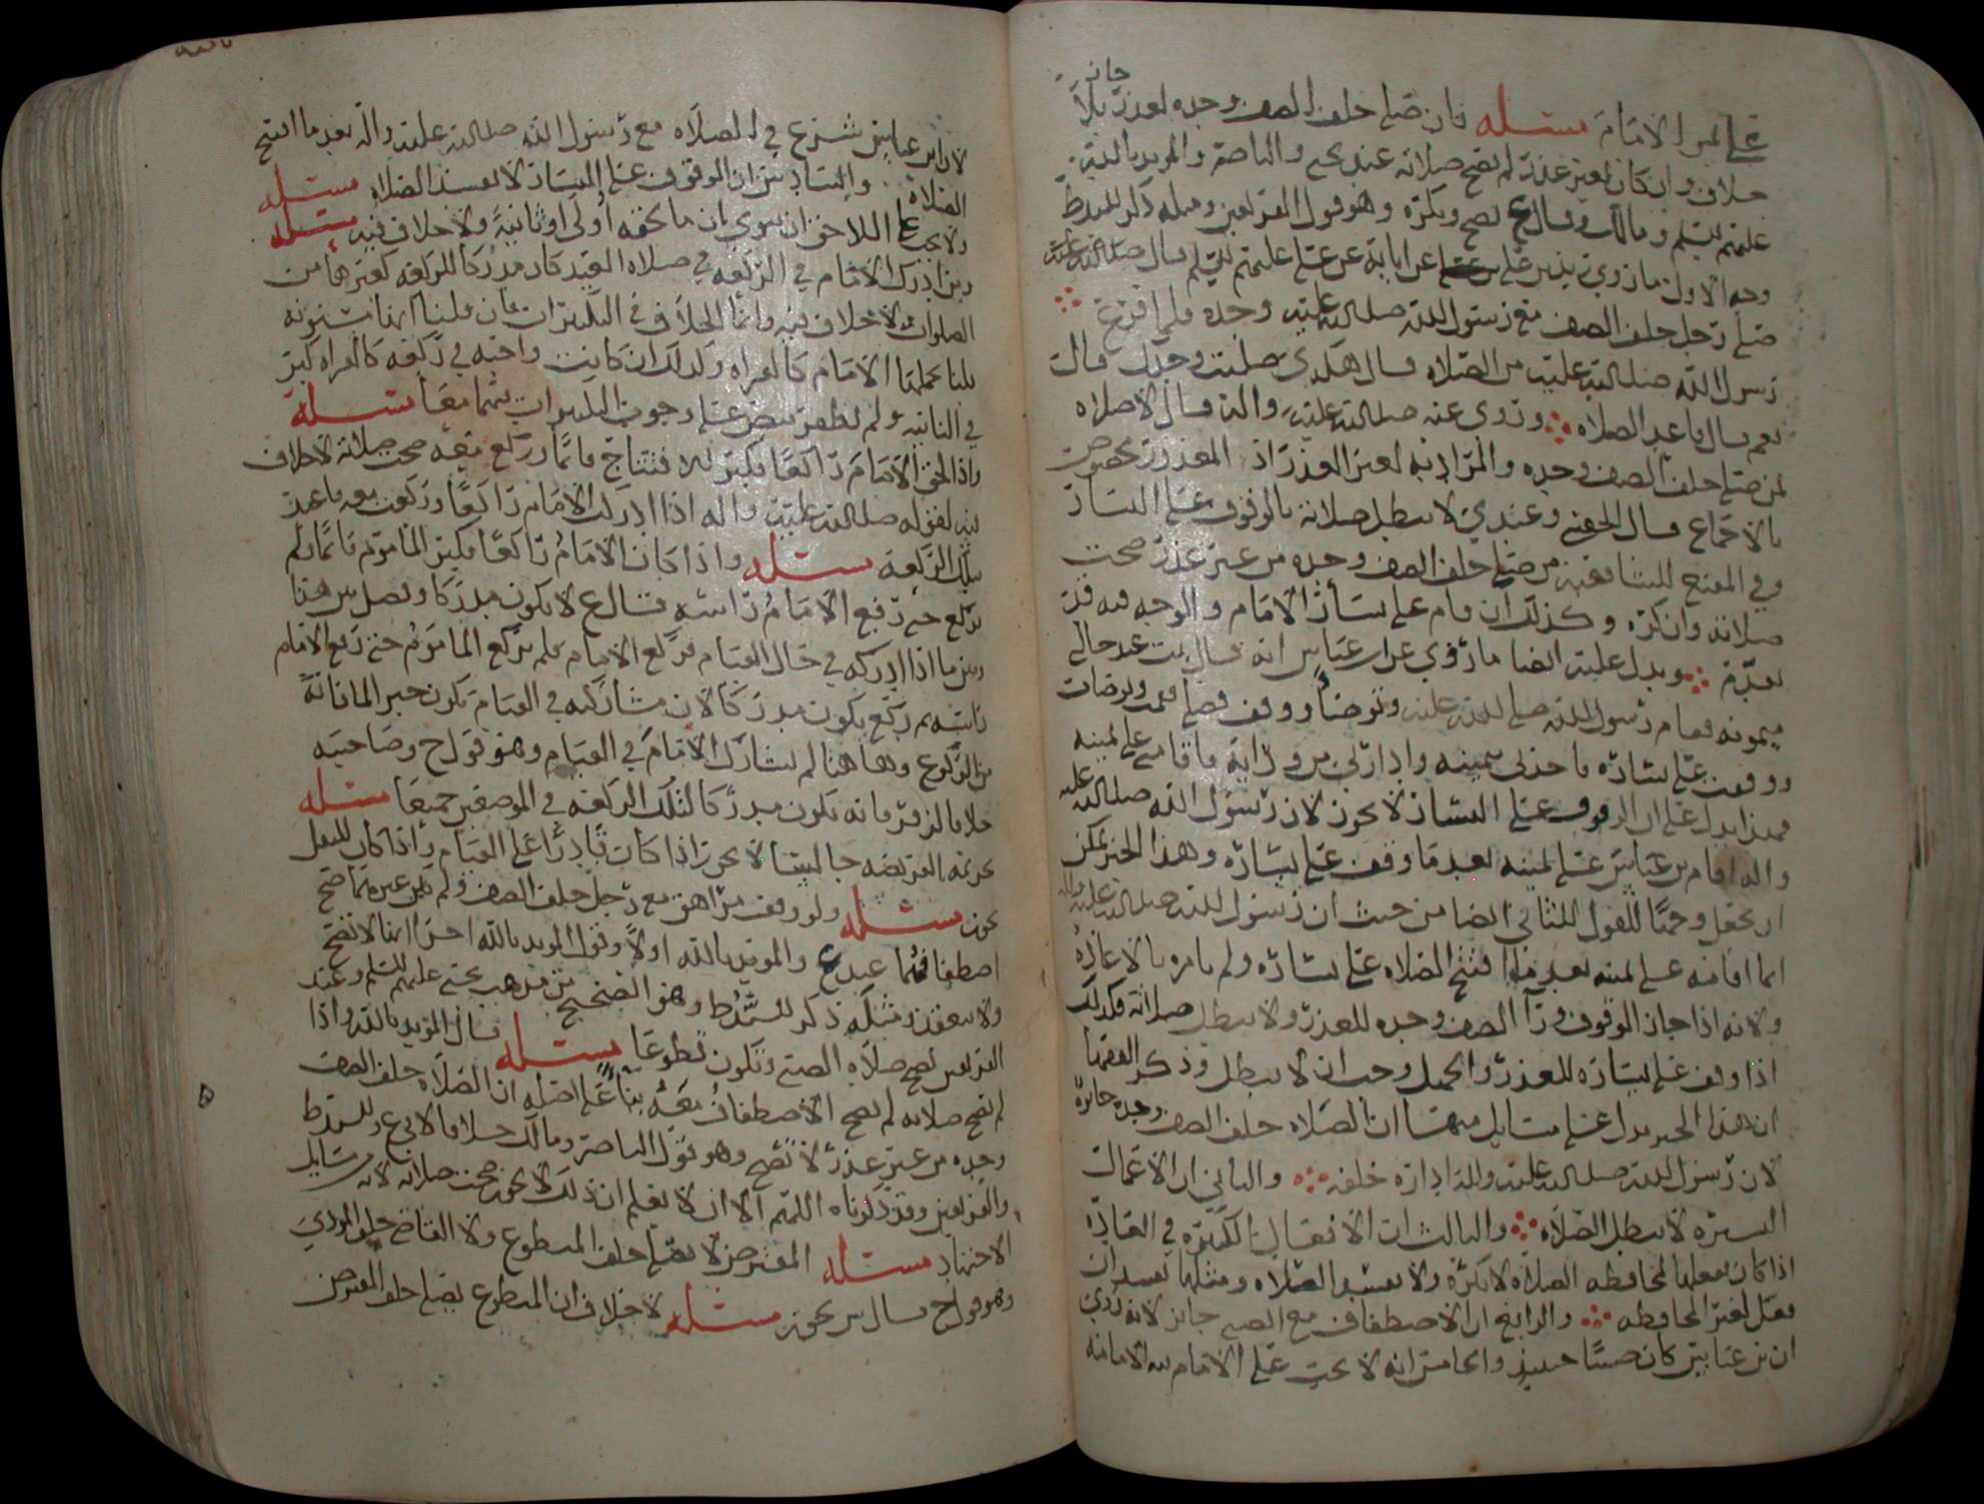 على يمين الامام مسئله فان صلى خلف الصف وحده لعذر جاز بلا
خلاف وان كان لغير عذر لم تصح صلاته عند يحيى والناصر والمويد بالله
عليهم السلم ومالك وقال ع تصح ويكره وهو قول الفريقين ومثله ذكر
وجه الاول ما روى زيد بن علي عن ابايه عن علي عليهم السلم قال
صلى رجل خلف الصف مع رسول الله صلى الله عليه وحده فلما فرغ
رسول الله صلى الله عليه من الصلاه قال هكذى صليت وحدك قال
نعم قال فاعد الصلاه وروي عنه صلى الله عليه واله قال لا صلاه
لمن صلى خلف الصف وحده والمراد به لغير العذر اذ المعذور مخصوص
بالاجماع قال الحقيني وعندي لا تبطل صلاته بالوقوف على اليسار
وفي المقنع للشافعيه من صلى خلف الصف وحده من غير عذر صحت
صلاته وان كره وكذلك ان قام على يسار الامام والوجه فيه قد
تقدم ويدل عليه ايضا ما روي عن ابن عباس انه قال بت عند خالتي
ميمونه فقام رسول الله صلى الله عليه وتوضا ووقف فصلى فقمت وتوضات
ووقفت على يساره فاخذني بيمينه وادارني من ورايه فاقامني على يمينه
فهذا يدل على ان الوقوف على اليسار لا يجوز لان رسول الله صلى الله عليه
واله اقام بن عباس على يمينه بعد ما وقف على يساره وهذا الخبر يمكن
ان يجعل وجها للقول الثاني ايضا من حيث ان رسول الله صلى الله عليه واله
انما اقامه على يمينه بعد ما افتتح الصلاه على يساره ولم يامره بالاعاده
ولانه اذا جاز الوقوف ورآ الصف وحده للعذر ولا تبطل صلاته فكذلك
اذا وقف على يساره للعذر والجهل وجب ان لا تبطل وذكر الفقها
ان هذا الخبر يدل على مسايل منها ان الصلاه خلف الصف وحده جائزه
لان رسول الله صلى الله عليه واله اداره خلفه والثاني ان الاعمال
اليسيره لا تبطل الصلاه والثالث ان الافعال الكثيره في العاده
اذا كان يفعلها لمحافظه الصلاه لا تكره ولا تفسد الصلاه ومثلها تفسد ان
فعل لغير المحافظه والرابع ان الاصطفاف مع الصبي جائز لانه روي
ان بن عباس كان صبيا حينئذ والخامس انه لا يجب على الامام نيه الامامه
لان ابن عباس شرع في الصلاه مع رسول الله صلى الله عليه واله بعد ما افتتح
الصلاه والسادس ان الوقوف على اليسار لا يفسد الصلاه مسئله
ولا يجب على اللاحق ان ينوي ان ما يلحقه اولى او ثانية ولا خلاف فيه مسئله
ومن ادرك الامام في الركعه في صلاه العيد كان مدركا للركعه كغيرها من
الصلوات ولا خلاف فيه وانما الخلاف في التكبيرات فان قلنا انها مسنونه
قلنا تحملها الامام كالقراه وكذلك ان كانت واجبه في ركعه كالقراه كبر
في الثانيه ولم نظفر بنص على وجوب التكبيرات فيهما معا مسئله
واذا لحق الامام راكعا فكبر للافتتاح قائما وركع معه صحت صلاته لا خلاف
فيه لقوله صلى الله عليه واله اذا ادرك الامام راكعا وركعت معه فاعتد
بتلك الركعه مسئله واذا كان الامام راكعا فكبر الماموم قائما ولم
يركع حتى رفع الامام راسه قال ع لا يكون مدركا وفصل بين هذا
وبين ما اذا ادركه في حال القيام فركع الامام فلم يركع الماموم حتى رفع الامام
راسه ثم ركع يكون مدركا لان مشاركته في القيام تكون جبر لما فاته
من الركوع وهاهنا لم يشارك الامام في القيام وهو قول ح وصاحبيه
خلافا لزفر فانه يكون مدركا لتلك الركعه في الموضعين جميعا مسئله
تحريمه الفريضه جالسا لا تجوز اذا كان قادرا على القيام واذا كان للنفل
تجوز مسئله ولو وقف مراهق مع رجل خلف الصف ولم يكن غيرهما صح
اصطفافهما عند ع والمويد بالله اولا وقول المويد بالله اخرا انها لا تصح
ولا تنعقد ومثله ذكر وهو الصحيح من مذهب يحيى عليهم السلم وعند
الفريقين تصح صلاه الصبي وتكون تطوعا مسئله قال المويد بالله واذا
لم تصح صلاته لم يصح الاصطفاف معه بنآ على اصله ان الصلاه خلف الصف
وحده من غير عذر لا تصح وهو قول الناصر ومالك خلافا لابي ع
والفريقين وقد ذكرناه اللهم الا ان لا يعلم ان ذلك لا يجوز صحت صلاته لانه من مسايل
الاجتهاد مسئله المفترض لا يصلي خلف المتطوع ولا القاضي خلف المودي
وهو قول ح قال س يجوز مسئله لا خلاف ان المتطوع يصلي خلف المفترض